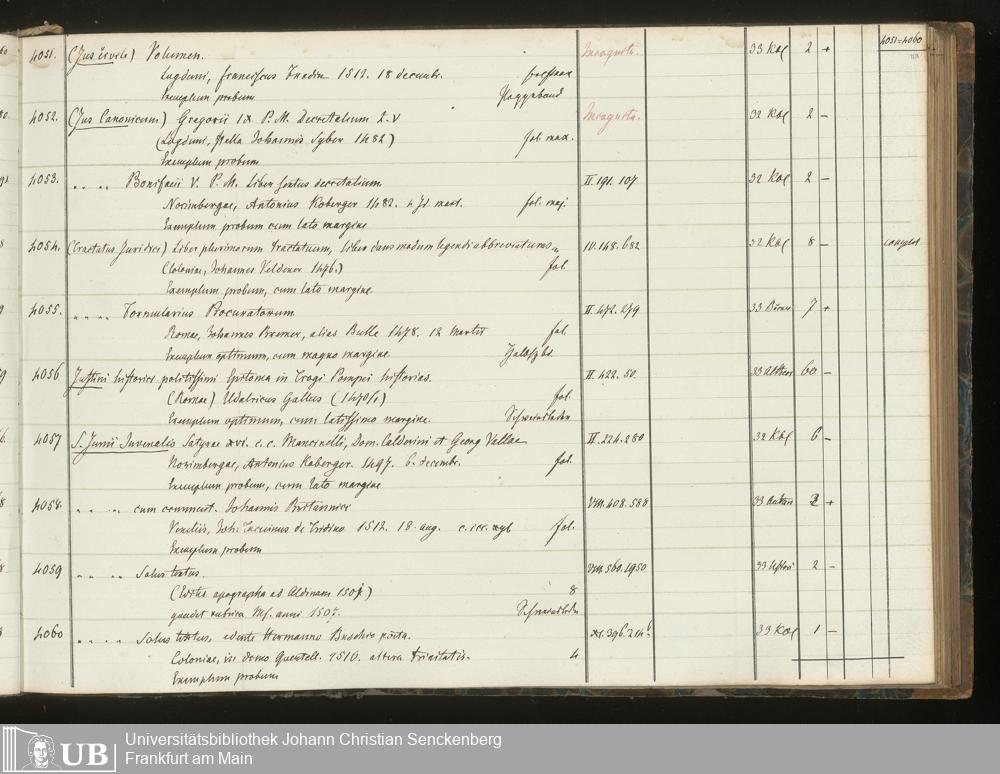 4051=4060
4051. (Jus civile) Volumen. Incognita. 33 Kal 2 +
Lugduni, franciscus Fradin 1512. 18 decembr.
Exemplum probum
4052. (Jus Canonicum) Gregorii IX. P. M. Decretalium L. V Incognita. 32 Kal 2 -
(Lugduni, Stella Johannis Syber 1482) fol. max.
Exemplum probum
4053. " " " Bonifacii V. P. M. Liber sextus decretalium II. 191. 107 32 Kal 2 -
Norimbergae, Antonius Koberger 1482. fol. maj.
Exemplum probum cum lato margine
4054. (Tractatus Juridici) Liber plurimorum tractatuum, Liber dans modum legendi abbreviaturas IV. 148. 682 32 Kal 8 - complet
(Coloniae, Johannes Veldener 1476.) fol.
Exemplum probum, cum lato margine
4055. " " " " Formularius Procuratorum II. 472. 279 33 7 +
Romae, Johannes Bremer, alias Bulle 1478. 12 Martii fol.
Exemplum optimum, cum magno margine. Halbfzbd.
4056 Justini historici politissimi Epitoma in Trogi Pompei historias. II. 422. 50. 33 60 -
(Romae) Udalricus Gallus (1470/1) fol.
Exemplum optimum, cum latissimo margine. Schweinsleder
4057 D. Junii Juvenalis Satyrae XVI. c. c. Mancinelli, Dom. Calderini et Georg Vallae II. 224. 280 32 Kal 6 -
Norimbergae, Antonius Koberger. 1497. 6. decembr. fol.
Exemplum probum, cum lato margine
4058. " " " cum comment. Johannis Britannici VIII. 408. 588 33 +
Venetiis, Joh. Tacuinus de Tridino 1512. 18. aug. c. icc. xyl fol.
Exemplum probum
4059 " " " Solus textus. VIII. 560. 1950 33 2 -
(Editio apographa ad Aldinam 1501) 8
gaudet rubrica Ms. anni 1507. Schweinsleder
4060 " " " " Solus textus, edente Hermanno Buschio poeta. XI. 396. 214b 33 Kal 1 -
Coloniae, in domo Quentell. 1510. altera trinitatis. 4
Exemplum probum
UB
Universitätsbibliothek Johann Christian Senckenberg
Frankfurt am Main